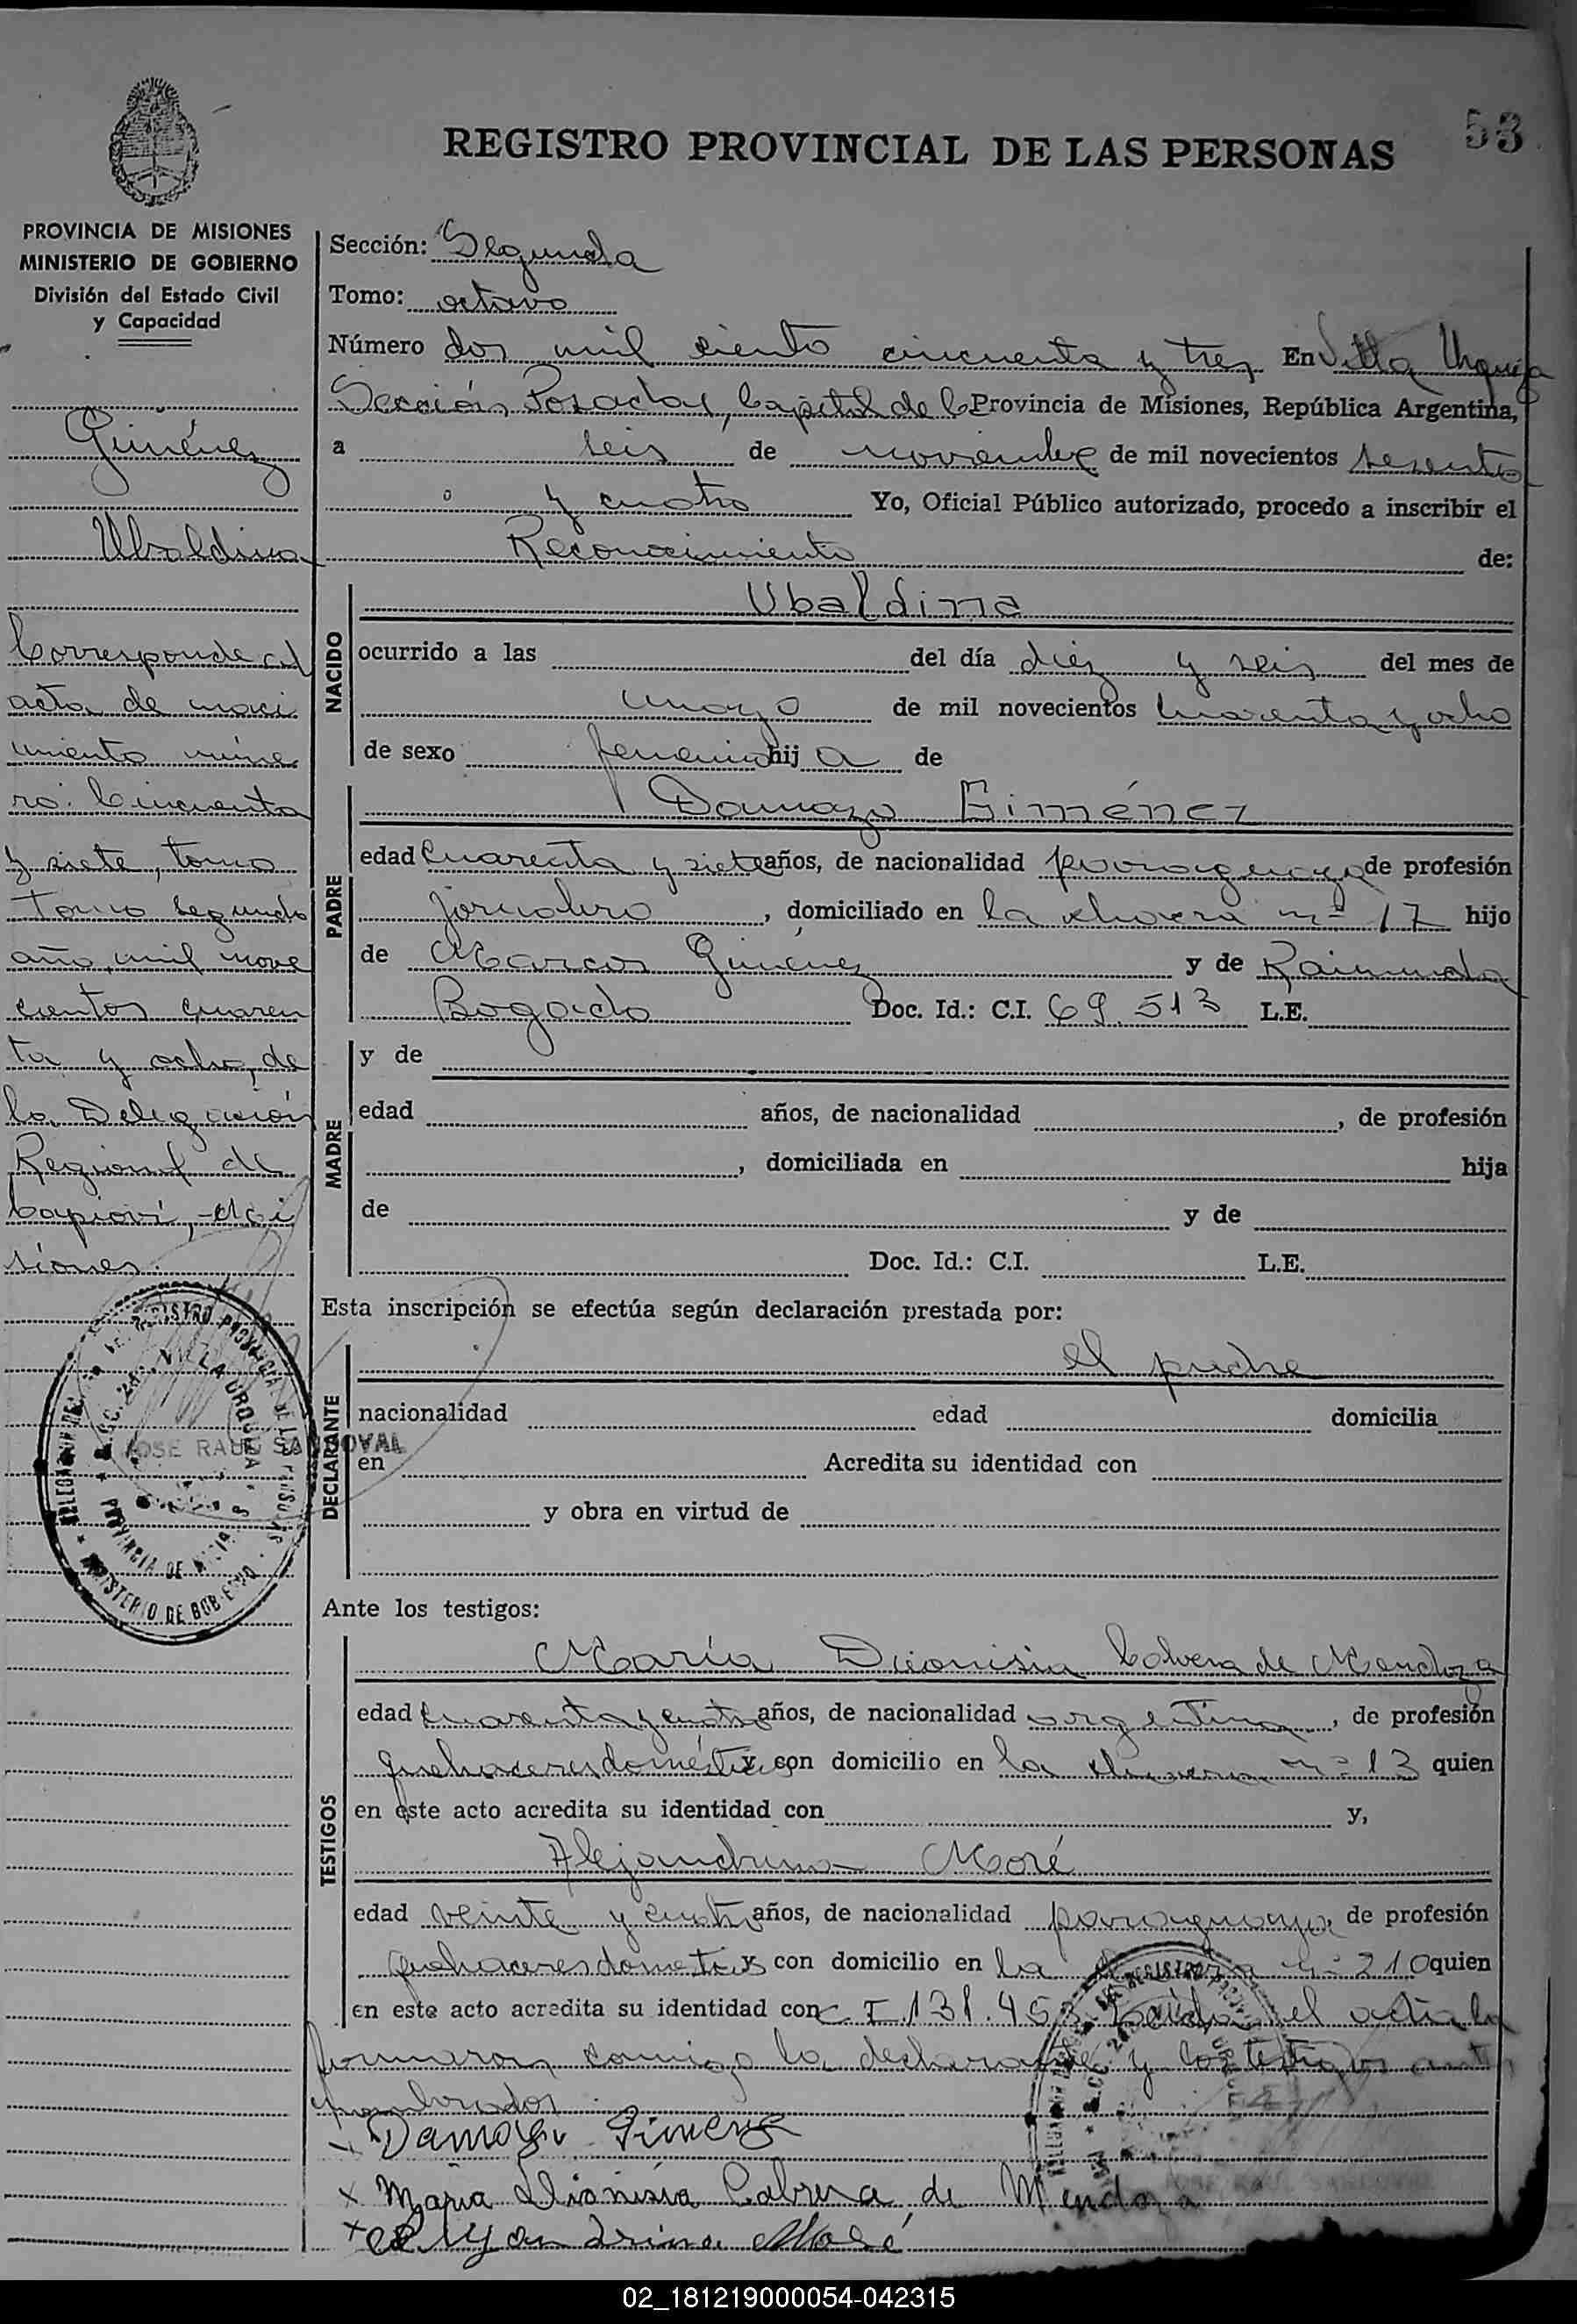 53
REGISTRO PROVINCIAL DE LAS PERSONAS
PROVINCIA DE MISIONES
MINISTERIO DE GOBIERNO
División del Estado Civil
y Capacidad
Giménez
Ubaldina
Corresponde al
acta de naci
miento núme
ro: Cincuenta
y siete, tomo
tomo segundo
año, mil nove
cientos cuaren
ta y ocho, de
la Delegación
Regional de
Capioví, Mi
siones.
JOSE RAUL SANDOVAL
Sección: Segunda
Tomo: octavo
Número dos mil ciento cincuenta y tres En Villa Urquiza
Sección, Posadas, Capital de la Provincia de Misiones, República Argentina,
a seis de noviembre de mil novecientos sesenta
y cuatro Yo, Oficial Público autorizado, procedo a inscribir el
Reconocimiento de:
NACIDO
Ubaldina
ocurrido a las del día diez y seis del mes de
mayo de mil novecientos cuarenta y ocho
de sexo femenino hij a de
PADRE
Damazo Giménez
edad cuarenta y siete años, de nacionalidad paraguaya de profesión
jornalero, domiciliado en la chacra nº 17 hijo
de Marcos Giménez y de Raimunda
Bogado Doc. Id.: C.I. 69.513 L.E.
MADRE
y de
edad años, de nacionalidad , de profesión
, domiciliada en hija
de y de
Doc. Id.: C.I. L.E.
Esta inscripción se efectúa según declaración prestada por:
DECLARANTE
el padre
nacionalidad edad domicilia
en Acredita su identidad con
y obra en virtud de
Ante los testigos:
TESTIGOS
María Dionisia Cabrera de Mendoza
edad cuarenta y cuatro años, de nacionalidad argentina, de profesión
quehaceres domésticos con domicilio en la chacra nº 13 quien
en este acto acredita su identidad con y,
Alejandrina Moré
edad veinte y cuatro años, de nacionalidad paraguaya, de profesión
quehaceres domesticos con domicilio en la chacra nº 210 quien
en este acto acredita su identidad con C I 131.453 Leida el acta la
firmaron conmigo la declarante y los testigos ante
nombrados
x Damaso Gimenez
x Maria Dionisia Cabrera de Mendoza
x Alejandrina Moré
02_181219000054-042315